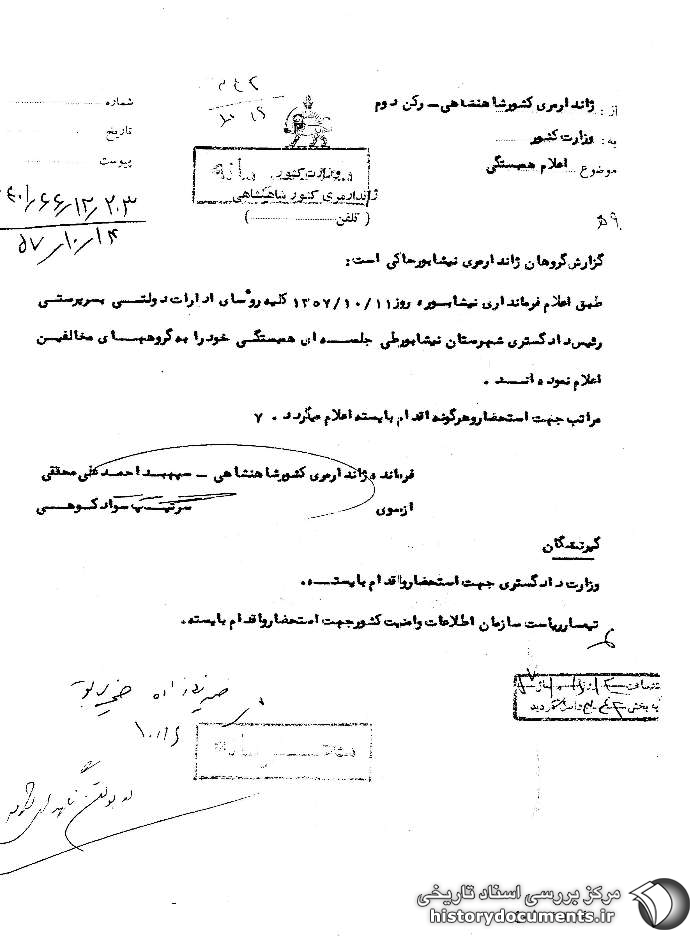 از: ژاندارمری کشورشاهنشاهی - رکن دوم
به: وزارت کشور
موضوع اعلام همبستگی
شماره
تاریخ
پیوست
وزارت کشور
ژاندارمری کشور شاهنشاهی
(تلفن )
۴۰۱٫۶۶٫۱۲٫۲۰۳
۵۷٫۱۰٫۱۴
گزارش گروهان ژاندارمری نیشابور حاکی است:
طبق اعلام فرمانداری نیشابور روز ۱۳۵۷/۱۰/۱۱ کلیه روسای ادارات دولتی بسرپرستی
رئیس دادگستری شهرستان نیشابور طی جلسه ای همبستگی خود را به گروههای مخالفین
اعلام نموده اند.
مراتب جهت استحضار و هرگونه اقدام بایسته اعلام میگردد. ۷
فرمانده ژاندارمری کشورشاهنشاهی - سپهبد احمد علی محققی
ازسوی سرتیپ سوادکوهی
گیرندگان
وزارت دادگستری جهت استحضار و اقدام بایسته.
تیمسار ریاست سازمان اطلاعات و امنیت کشور جهت استحضار و اقدام بایسته.
مرکز بررسی اسناد تاریخی
historydocuments.ir